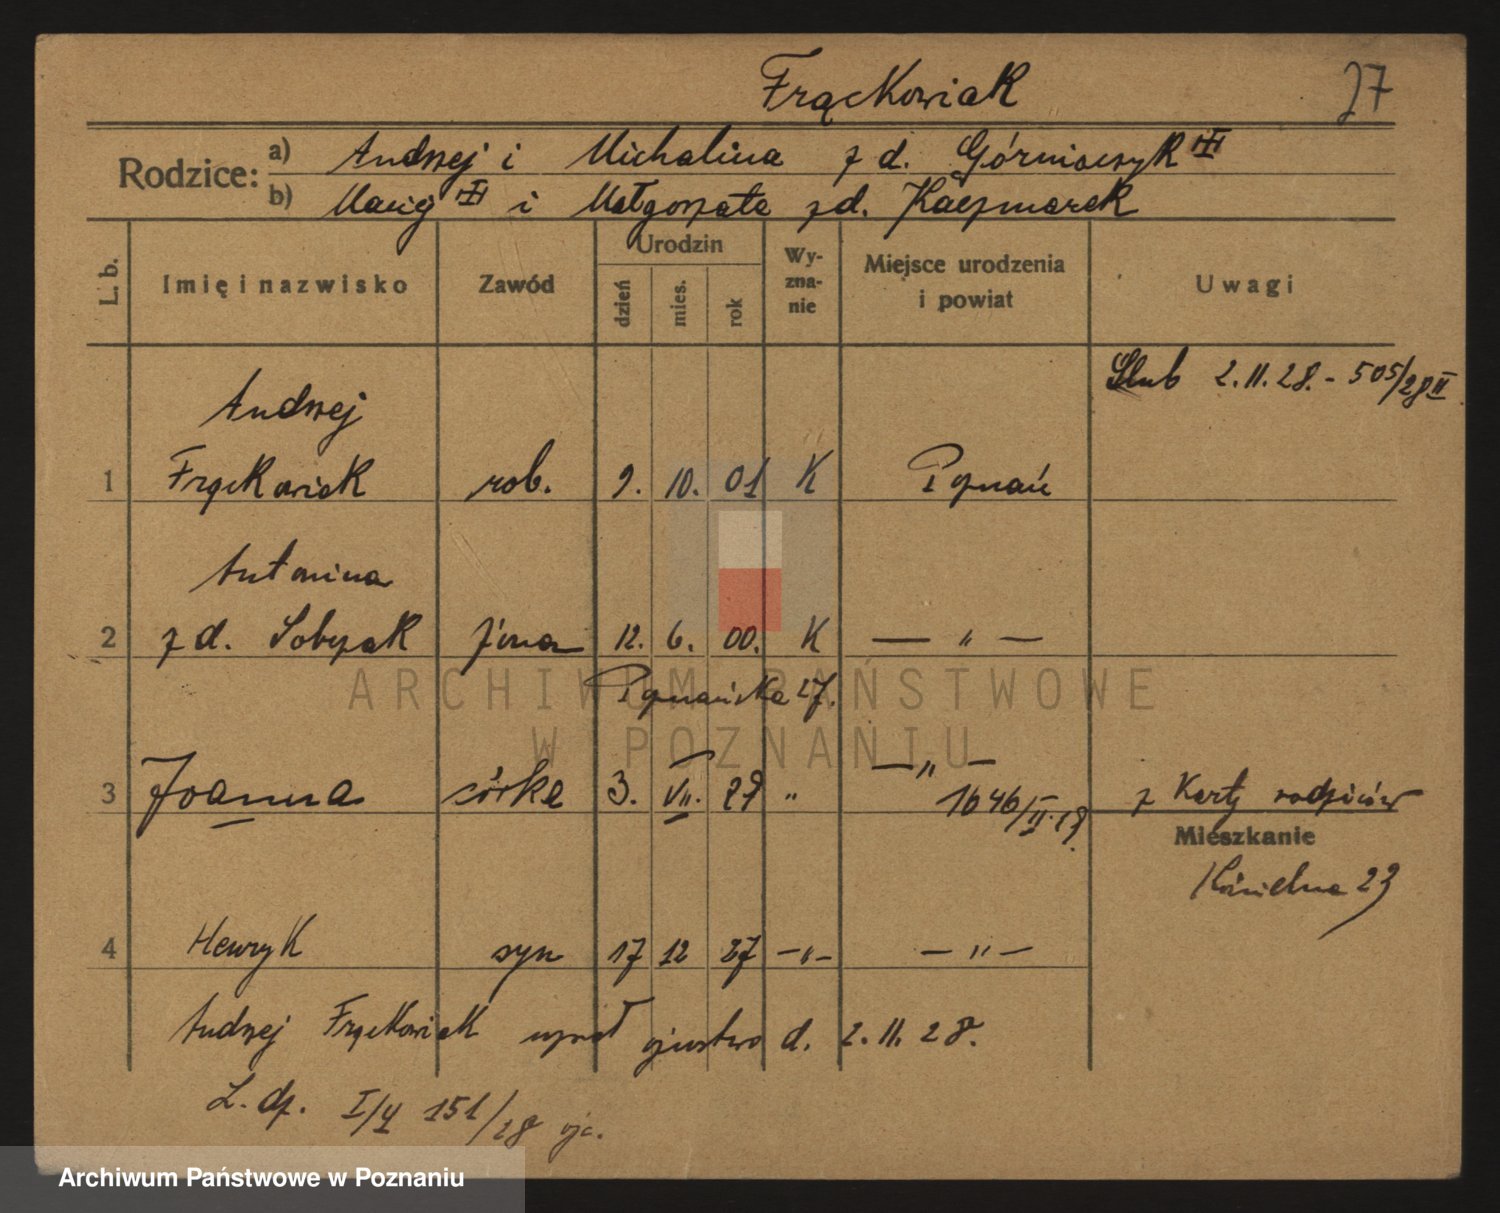 Frąckowiak 27
Rodzice: a) Andrzej i Michalina z d. Górniaczyk
b) i Małgorzata z d. Kaczmarek
L. b. Imię i nazwisko Zawód Urodzin dzień mies. rok Wy-zna-nie Miejsce urodzenia i powiat Uwagi
Ślub 2.11.28. - 505/28 II
Andrzej
1 Frąckowiak rob. 9. 10. 01 K Poznań
Antonina
2 z d. Sobczak ż'ona 12. 6. 00. K — " —
Poznańska 27.
3 Joanna córka 3. VII. 29 " — " —
1646/II.29 z karty rodziców
Mieszkanie
Kościelna 23
4 Henryk syn 17 12 27 — " — — " —
Andrzej Frąckowiak uznał ojcostwo d. 2. 11. 28.
L. dz. I/V 151/28 ojc.
ARCHIWUM PAŃSTWOWE
W POZNANIU
Archiwum Państwowe w Poznaniu